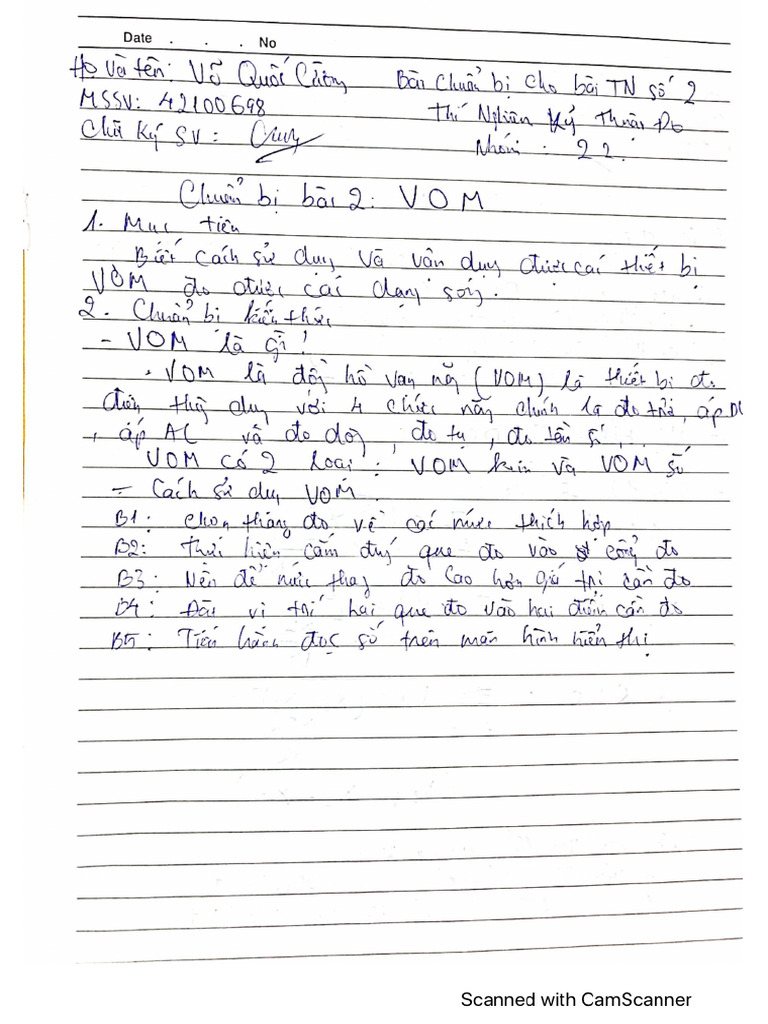 Date . . . No
Họ và tên: Võ Quốc Cường Bài chuẩn bị cho bài TN số 2
MSSV: 42100698 Thí Nghiệm Kỹ Thuật Đo
Chữ Ký SV: Nhóm: 22.
Chuẩn bị bài 2: VOM
1. Mục tiêu
Biết cách sử dụng và vận dụng được các thiết bị
VOM đo được các dạng sóng.
2. Chuẩn bị kiến thức
- VOM là gì!
. VOM là đồng hồ vạn năng (VOM) là thiết bị đo
điện thông dụng với 4 chức năng chính là đo trở, áp DC
, áp AC và đo dòng, đo tụ, đo tần số, ...
VOM có 2 loại: VOM kim và VOM số
- Cách sử dụng VOM.
B1: Chọn thang đo về các mức thích hợp
B2: Thực hiện cắm đúng que đo vào cổng đo
B3: Nên để mức thang đo cao hơn giá trị cần đo
B4: Đặt vị trí hai que đo vào hai điểm cần đo
B5: Tiến hành đọc số trên màn hình hiển thị
Scanned with CamScanner